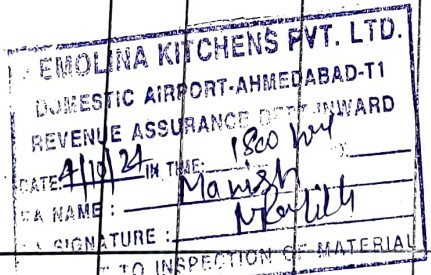 EMOLINA KITCHENS PVT. LTD.
DOMESTIC AIRPORT-AHMEDABAD-T1
REVENUE ASSURANCE DEPT. INWARD
DATE: 4/10/24 IN TIME: 1800 hrs
RA NAME : Manish
RA SIGNATURE :
T TO INSPECTION OF MATERIAL